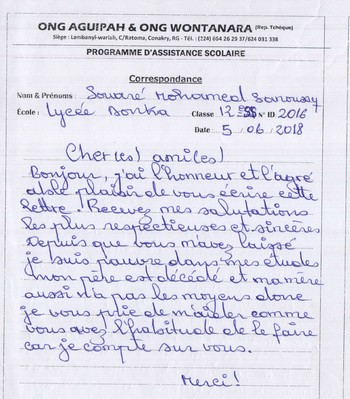 ONG AGUIPAH & ONG WONTANARA (Rep. Tchèque)
Siège : Lambanyi-wariah, C/Ratoma, Conakry, RG - Tél. : (224) 664 26 29 37/624 031 338
PROGRAMME D'ASSISTANCE SCOLAIRE
Correspondance
Nam & Prénoms : Souaré Mohamed Sanoussy
École : Lycée Donka Classe 12e SS N° ID 2016
Date 5 / 06 / 2018
Cher(es) ami(es)
Bonjour, j'ai l'honneur et l'agré
able plaisir de vous écrire cette
lettre. Recevez mes salutations
les plus respectieuses et sincères
Depuis que vous m'avez laissé
je suis pauvre dans mes études
mon père est décédé et ma mère
aussi n'a pas les moyens donc
je vous prie de m'aider comme
vous avez l'habitude de le faire
car je compte sur vous.
Merci!